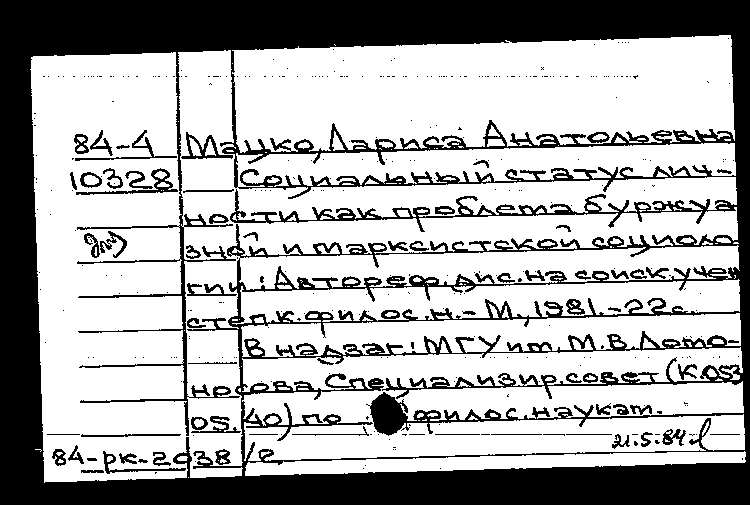 84-4 Мацко, Лариса Анатольевна
10328 Социальный статус лич-
ности как проблема буржуа-
зной и марксистской социоло-
гии: Автореф. дис. на соиск. учен
степ. к. филос. н. - М., 1981. - 22с.
В надзаг: МГУ им. М.В. Ломо-
носова, Специализир. совет (К.053
05.40) по филос. наукам.
21.5.84
84-рк-2038/2